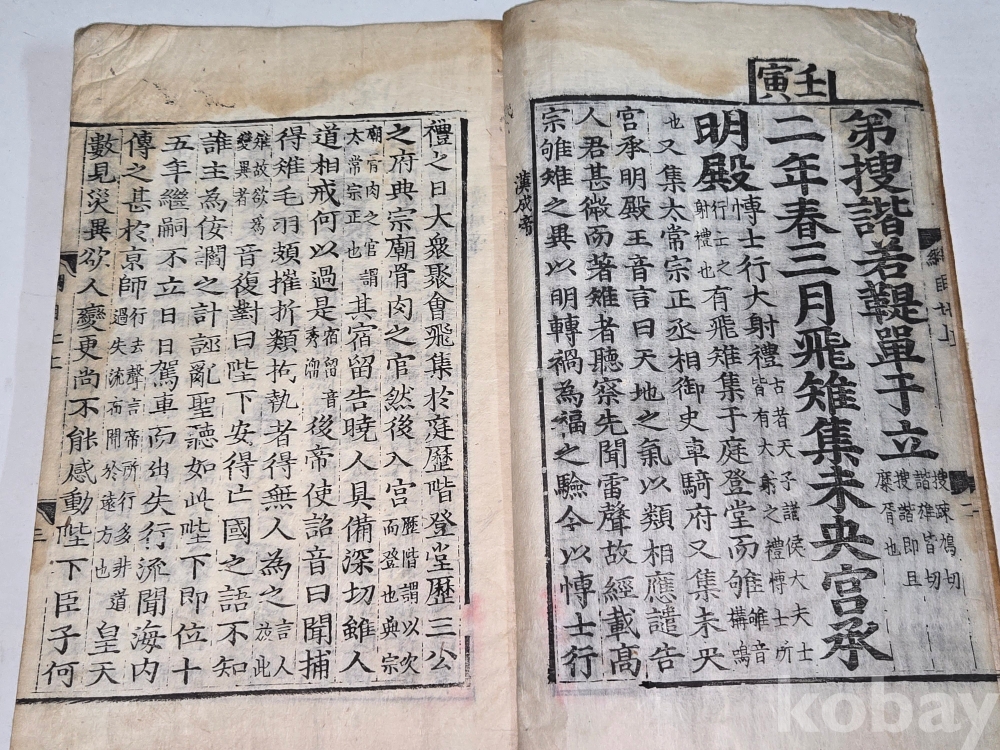 壬寅
弟搜諧若鞮單于立搜疎鳩切諧雄皆切搜諧即且糜胥也
二年春三月飛雉集未央宮承
明殿慱士行大射禮古者天子諸侯大夫士皆有大射之禮慱士所
行士之射禮也有飛雉集于庭登堂而雊雊音構鳴
也又集太常宗正丞相御史車騎府又集未央
宮承明殿王音言曰天地之氣以類相應譴告
人君甚微而著雉者聽察先聞雷聲故經載高
宗雊雉之異以明轉禍為福之驗今以慱士行
漢成帝
禮之日大衆聚會飛集於庭歷階登堂歷三公
之府典宗廟骨肉之官然後入宮歷階謂以次而登也典宗
廟骨肉之官謂太常宗正也其宿留告曉人具備深切雖人
道相戒何以過是宿留音秀溜後帝使詔音曰聞捕
得雉毛羽頗摧折類拘執者得無人為之言人放此
雉故欲為變異者音復對曰陛下安得亡國之語不知
誰主為佞讇之計誣亂聖聽如此陛下即位十
五年繼嗣不立日日駕車而出失行流聞海內
傳之甚於京師行去聲言帝所行多非道過失流布聞於遠方也皇天
數見災異欲人變更尚不能感動陛下臣子何
三
kobay